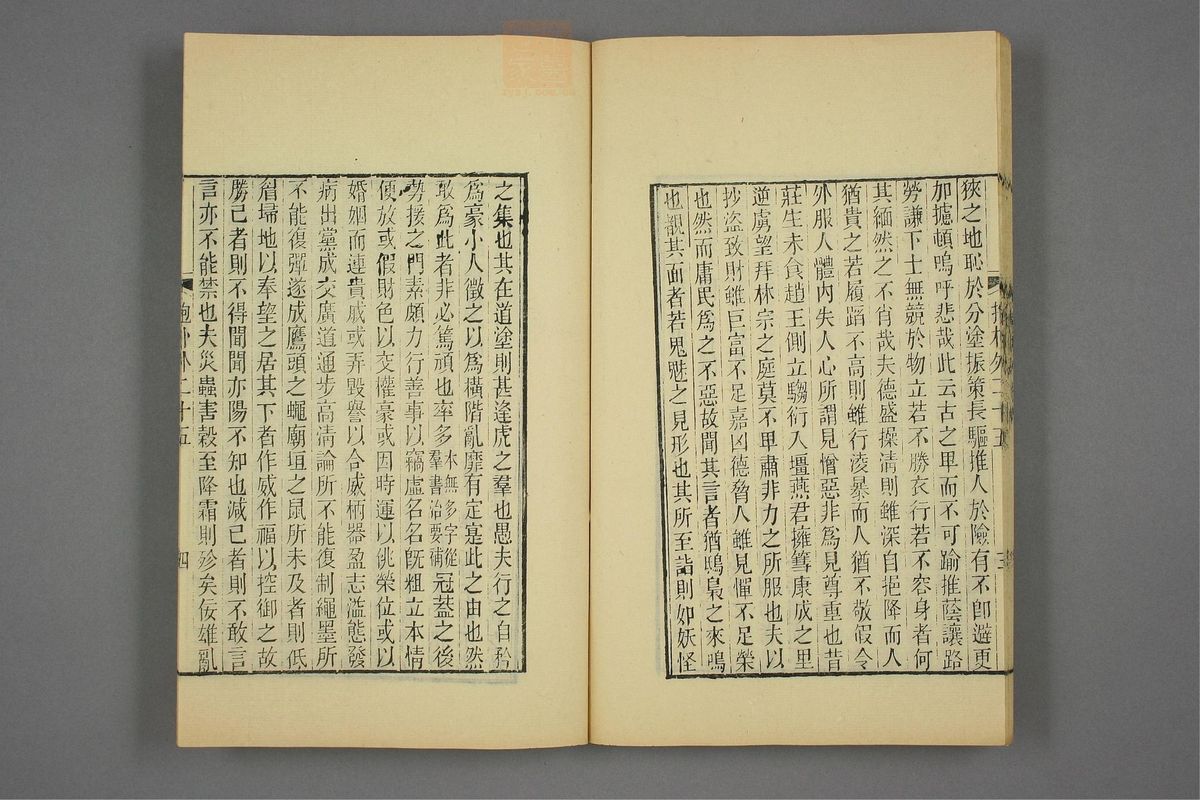 狹之地恥於分塗振策長驅推人於險有不卽避更
加攄頓嗚呼悲哉此云古之卑而不可踰推蔭讓路
勞謙下士無競於物立若不勝衣行若不容身者何
其緬然之不肖哉夫德盛操清則雖深自挹降而人
猶貴之若履蹈不高則雖行淩暴而人猶不敬假令
外服人體內失人心所謂見憎惡非爲見尊重也昔
莊生未食趙王側立騶衍入壃燕君擁篲康成之里
逆虜望拜林宗之庭莫不卑肅非力之所服也夫以
抄盜致財雖巨富不足嘉凶德脅人雖見憚不足榮
也然而庸民爲之不惡故聞其言者猶鴟梟之來鳴
也覩其面者若鬼魅之見形也其所至詣則如妖怪
之集也其在道塗則甚逢虎之羣也愚夫行之自矜
爲豪小人徵之以爲橫階亂靡有定寔此之由也然
敢爲此者非必篤頑也率多本無多字從羣書治要補冠蓋之後
勢援之門素頗力行善事以竊虛名名旣粗立本情
便放或假財色以交權豪或因時運以佻榮位或以
婚姻而連貴戚或弄毀譽以合威柄器盈志溢態發
病出黨成交廣道通步高清論所不能復制繩墨所
不能復彈遂成鷹頭之蠅廟垣之鼠所未及者則低
眉埽地以奉望之居其下者作威作福以控御之故
勝己者則不得聞聞亦陽不知也減己者則不敢言
言亦不能禁也夫災蟲害穀至降霜則殄矣佞雄亂
抱朴外二十五
三
抱朴外二十五
四